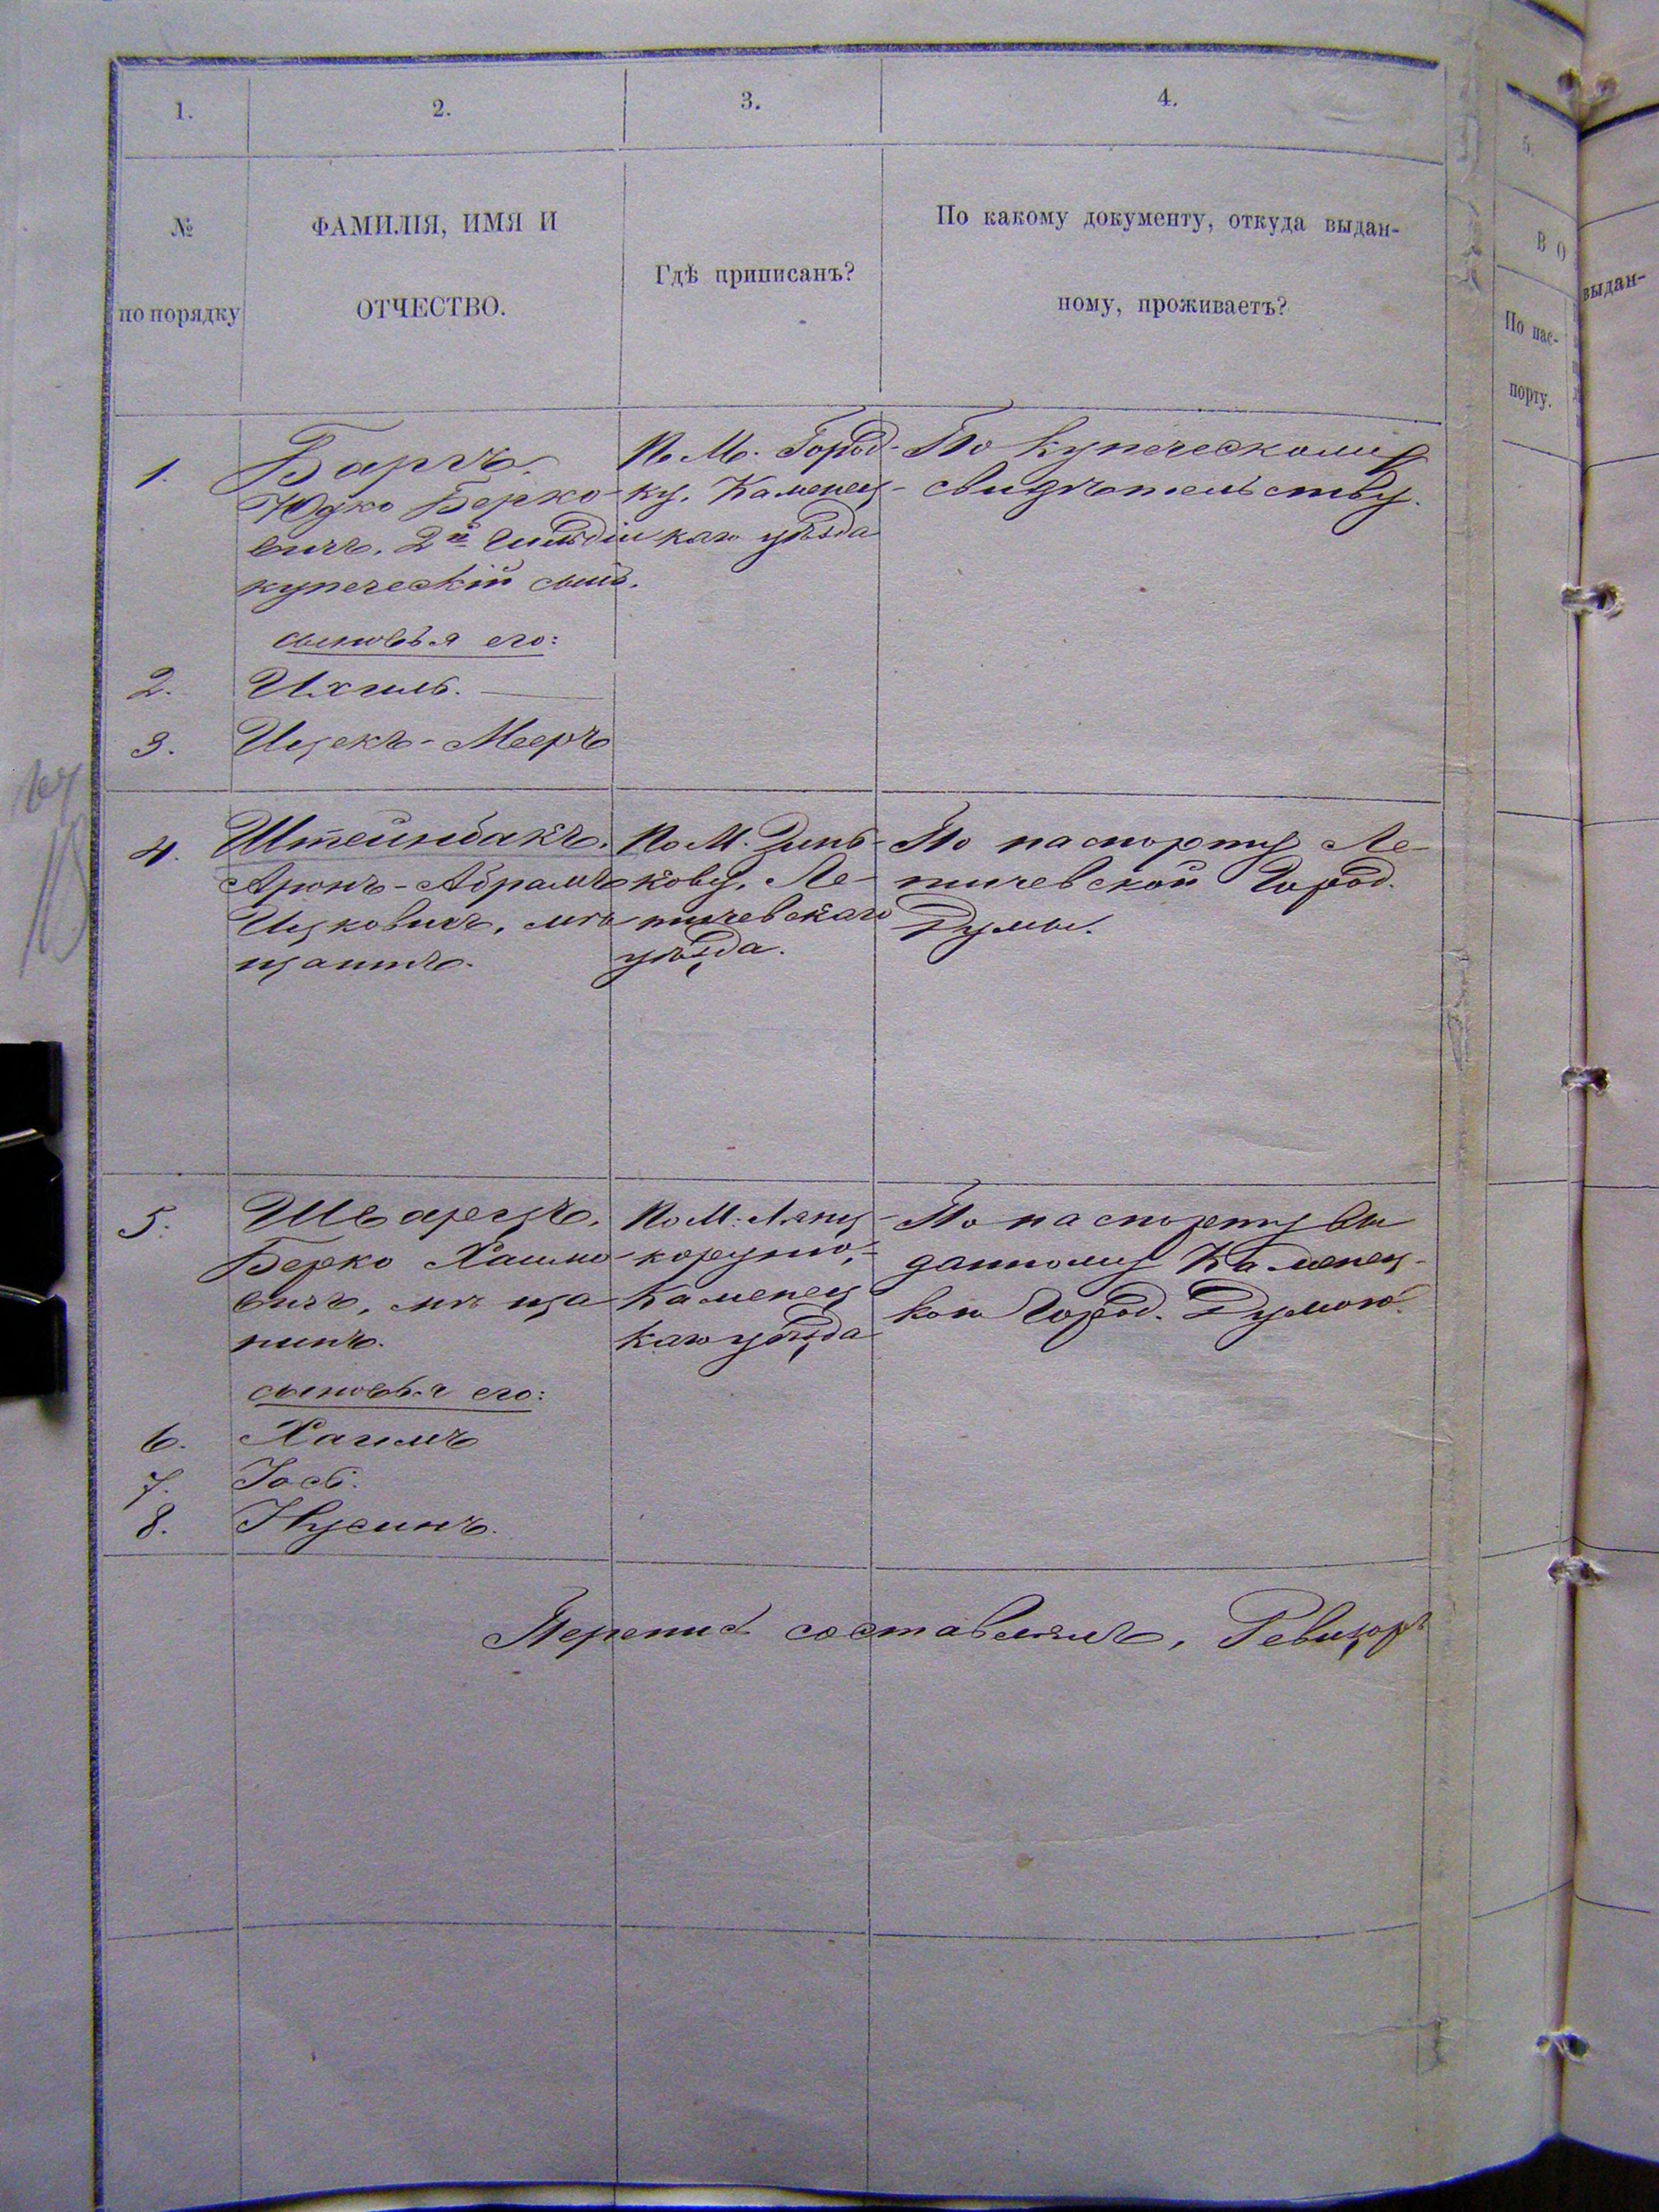 1.
2.
3.
4.
№
по порядку
ФАМИЛІЯ, ИМЯ И
ОТЧЕСТВО.
Гдѣ приписанъ?
По какому документу, откуда выдан-
ному, проживаетъ?
5.
В О
По пас-
порту.
выдан-
1.
Барчъ.
Юдко Берко-
вичъ, 2й Гильдіи
купеческій сынъ.
По М. Город-
ку, Каменец-
каго уѣзда
По купеческому
свидѣтельству.
сыновья его:
2. Ихиль.
3. Ицекъ-Мееръ
4.
Штейнбакъ.
Аронъ-Абрамъ
Ицковичъ, мѣ
щанинъ.
По М. Зинь-
кову, Ле-
тичевскаго
уѣзда.
По паспорту Ле-
тичевской Город.
Думы.
5.
Шварцъ.
Берко Хаимо-
вичъ, мѣща
нинъ.
По М. Лянц-
корунь,
Каменец
каго уѣзда
По паспорту вы
данному Каменец-
кою Город. Думою.
сыновья его:
6. Хаимъ
7. Іось.
8. Нусинъ.
Перепись составлялъ, Ревизоръ